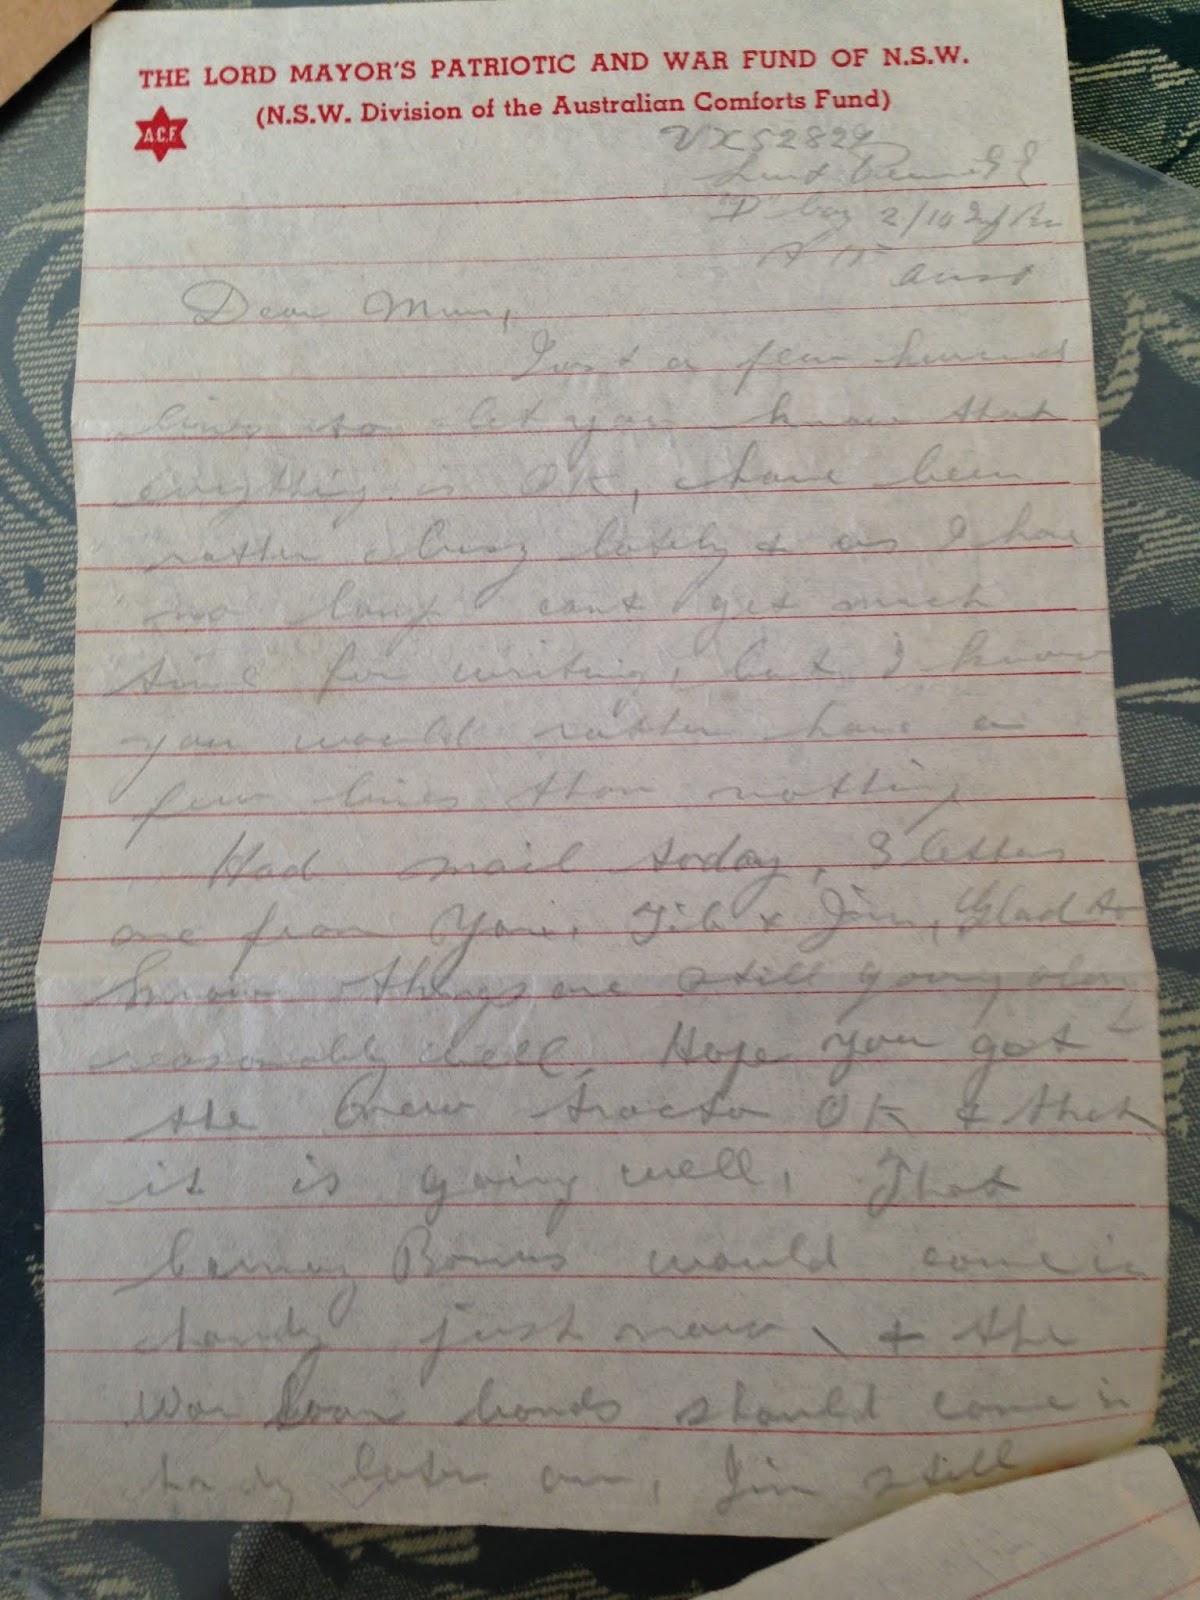 THE LORD MAYOR'S PATRIOTIC AND WAR FUND OF N.S.W.
(N.S.W. Division of the Australian Comforts Fund)
A.C.F.
VX52829
"D" Coy 2/14 Inf Bn
Aust
Dear Mum,
Just a few hurried
lines to let you know that
everything is OK, have been
rather busy lately & as I have
no lamp cant get much
time for writing, but I know
you would rather have a
few lines than nothing
Had mail today, 3 letters
one from You, Tib & Jim, Glad to
know things are still going along
reasonably well. Hope you got
the new tractor OK & that
it is going well, That
Bonus would come in
handy just now & the
War Loan bonds should come in
handy later on, Jim still